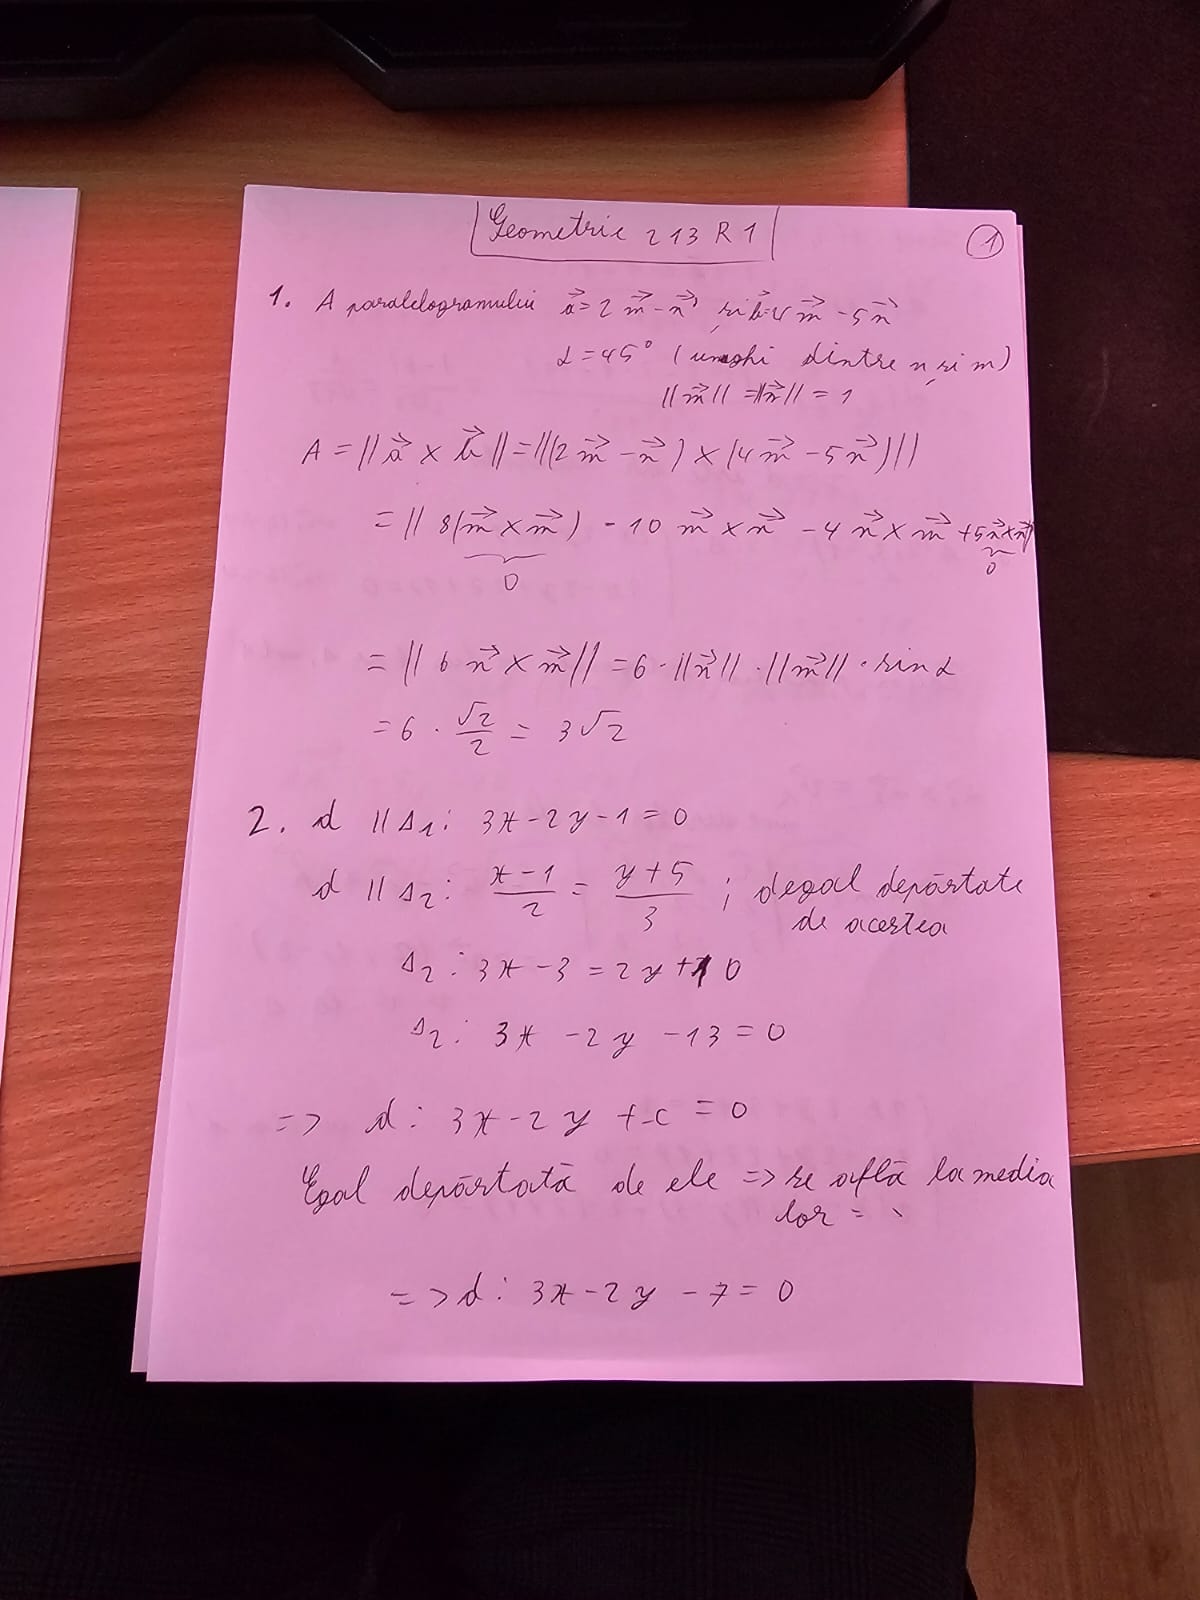 Geometrie 213 R1
①
1. A paralelogramului a⃗ = 2 m⃗ - n⃗ și b⃗ = 4 m⃗ - 5 n⃗
α = 45° (unghi dintre n și m)
||m⃗|| = ||n⃗|| = 1
A = ||a⃗ × b⃗|| = ||(2 m⃗ - n⃗) × (4 m⃗ - 5 n⃗)||
= || 8(m⃗ × m⃗) - 10 m⃗ × n⃗ - 4 n⃗ × m⃗ + 5 n⃗ × n⃗
0 0
= || 6 n⃗ × m⃗ || = 6 · ||n⃗|| · ||m⃗|| · sin α
= 6 · √2/2 = 3√2
2. d || Δ1 : 3x - 2y - 1 = 0
d || Δ2 : (x - 1)/2 = (y + 5)/3 ; degal depărtate
de acestea
Δ2 : 3x - 3 = 2y + 10
Δ2 : 3x - 2y - 13 = 0
=> d : 3x - 2y + c = 0
Egal depărtată de ele => se află la media
lor =
=> d : 3x - 2y - 7 = 0